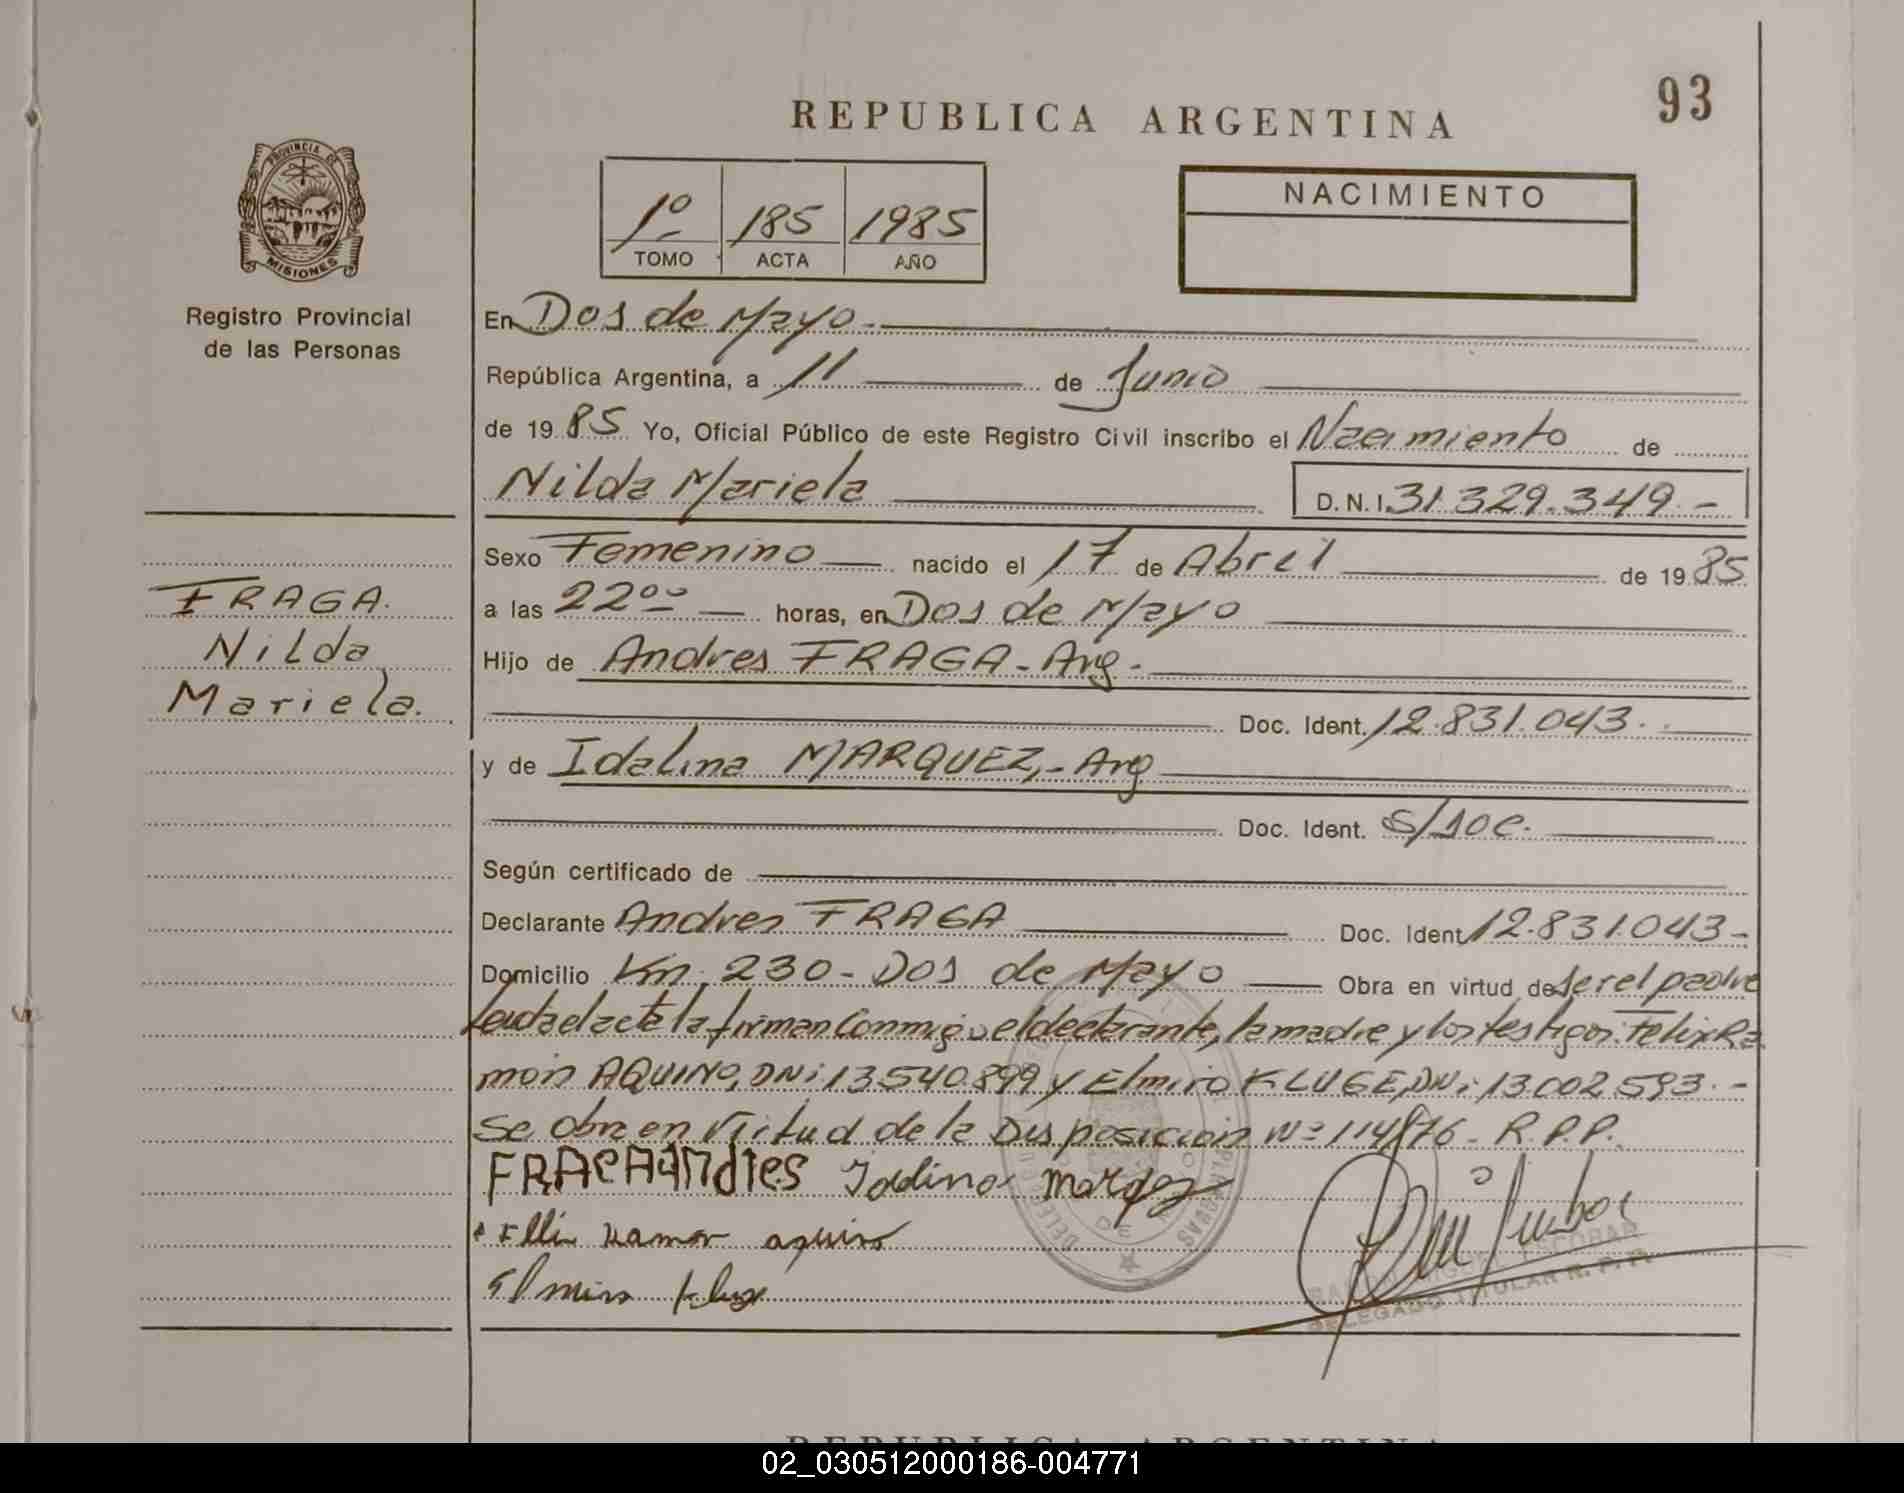 93
REPUBLICA ARGENTINA
PROVINCIA DE
MISIONES
Registro Provincial
de las Personas
1º 185 1985
TOMO ACTA AÑO
NACIMIENTO
En Dos de Mayo.-
República Argentina, a 11 de Junio
de 1985 Yo, Oficial Público de este Registro Civil inscribo el Nacimiento de
Nilda Mariela D.N.I. 31.329.349.-
Sexo Femenino nacido el 17 de Abril de 1985
a las 22°° horas, en Dos de Mayo
Hijo de Andres FRAGA - Arg.-
Doc. Ident. 12.831.043.
y de Idalina MARQUEZ,- Arg
Doc. Ident. S/
Según certificado de
Declarante Andres FRAGA Doc. Ident. 12.831.043-
Domicilio Km. 230 - Dos de Mayo Obra en virtud de ser el padre
el acta la firman conmigo el declarante, la madre y los testigos: Felix Ra
mon AQUINO, DNi 13.540.899 y Elmiro KLUGE, DNi: 13.002.593.-
Se obra en Virtud de la Disposicion Nº 114/76 - R.P.P.
FRAGA
Nilda
Mariela.
FRAGA Andres Idalina
Ramon aquino
Elmiro
ESCOBAR
DELEGADO TITULAR R. P. P.
REPUBLICA ARGENTINA
02_030512000186-004771